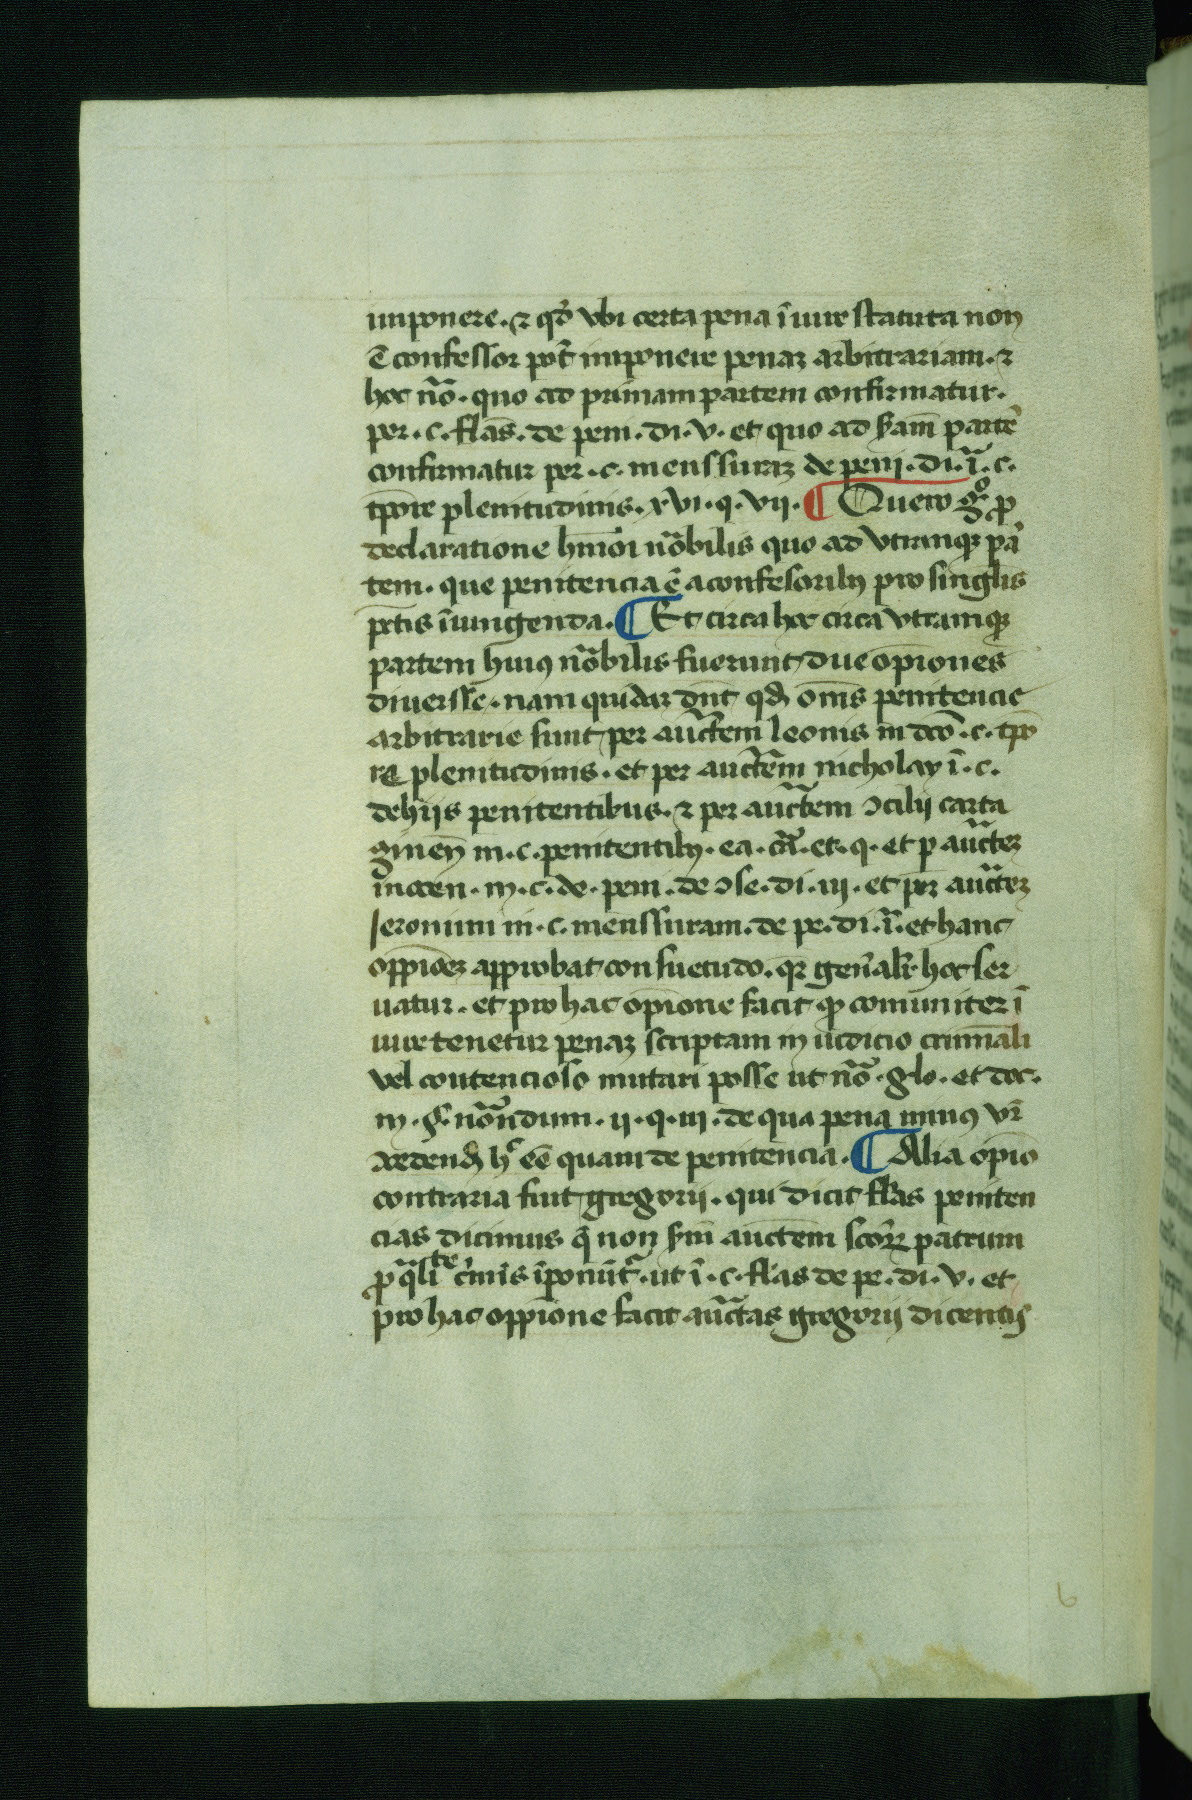 imponere. ⁊ qd̛ vbi certa pena ī iure statuta non
ē confessor pot̄ imponere penaꝫ arbitrariam. ⁊
hoc nō. quo ad primam partem confirmatur.
per. c. fl̄as. de peni. di. v. et quo ad s̄ām partē
confirmatur per. c. menssuraꝫ de peni. di. ī. c.
tp̄ore plenitudinis. xvi. q. vii. ¶ Quero gͦ ꝓ
declaratione hm̄oi nōbilis quo ad vtramqꝫ pa̅r
tem. que penitencia ē a confesoribꝰ pro singl̄is
pc̄tis īiungenda. ¶ Et circa hoc circa vtramqꝫ
partem huiꝰ nōbilis fuerunt due opiones
diuersse. nam quidaꝫ dn̄t qd̛ om̄s penitencie
arbitrarie sunt per auctc̄em leonis in dc̄o. c. tp̄o
re plenitudinis. et per auctēm nicholay ī. c.
de hijs penitentibus. ⁊ per auctēm ↄcilij carta
ginen̄ in. c. penitentibꝰ. ea. cā. et. q. et p auctēꝫ
inocen. in. c. de. peni. de ↄse. di. iij. et per auctēꝫ
Jeronimi in. c. menssuram. de pe. di. ī. et hanc
oppiōeꝫ approbat consuetudo. qꝛ gen̄alr̄ hoc ser
uatur. et pro hac opione facit qꝫ comuniter ī
iure tenetur penaꝫ scriptam in iudicio criminali
vel contencioso mutari posse ut nō. glo. et doc.
in. §. nōndum. ij. q. iii. de qua pena minꝰ vr̄
ↄcedend̛ hͦ eē quam de penitencia. ¶ Alia opio
contraria fuit gregorij. qui dicit fl̄as peniten
cias dicimus q̄ non s̄m auctēm scōꝝ patrum
ꝓ qⷶlite cͥmīs īponūtʳ. ut ī. c. fl̄as de pe. di. v. et
pro hac oppione facit auctāas gregorij dicentis
6